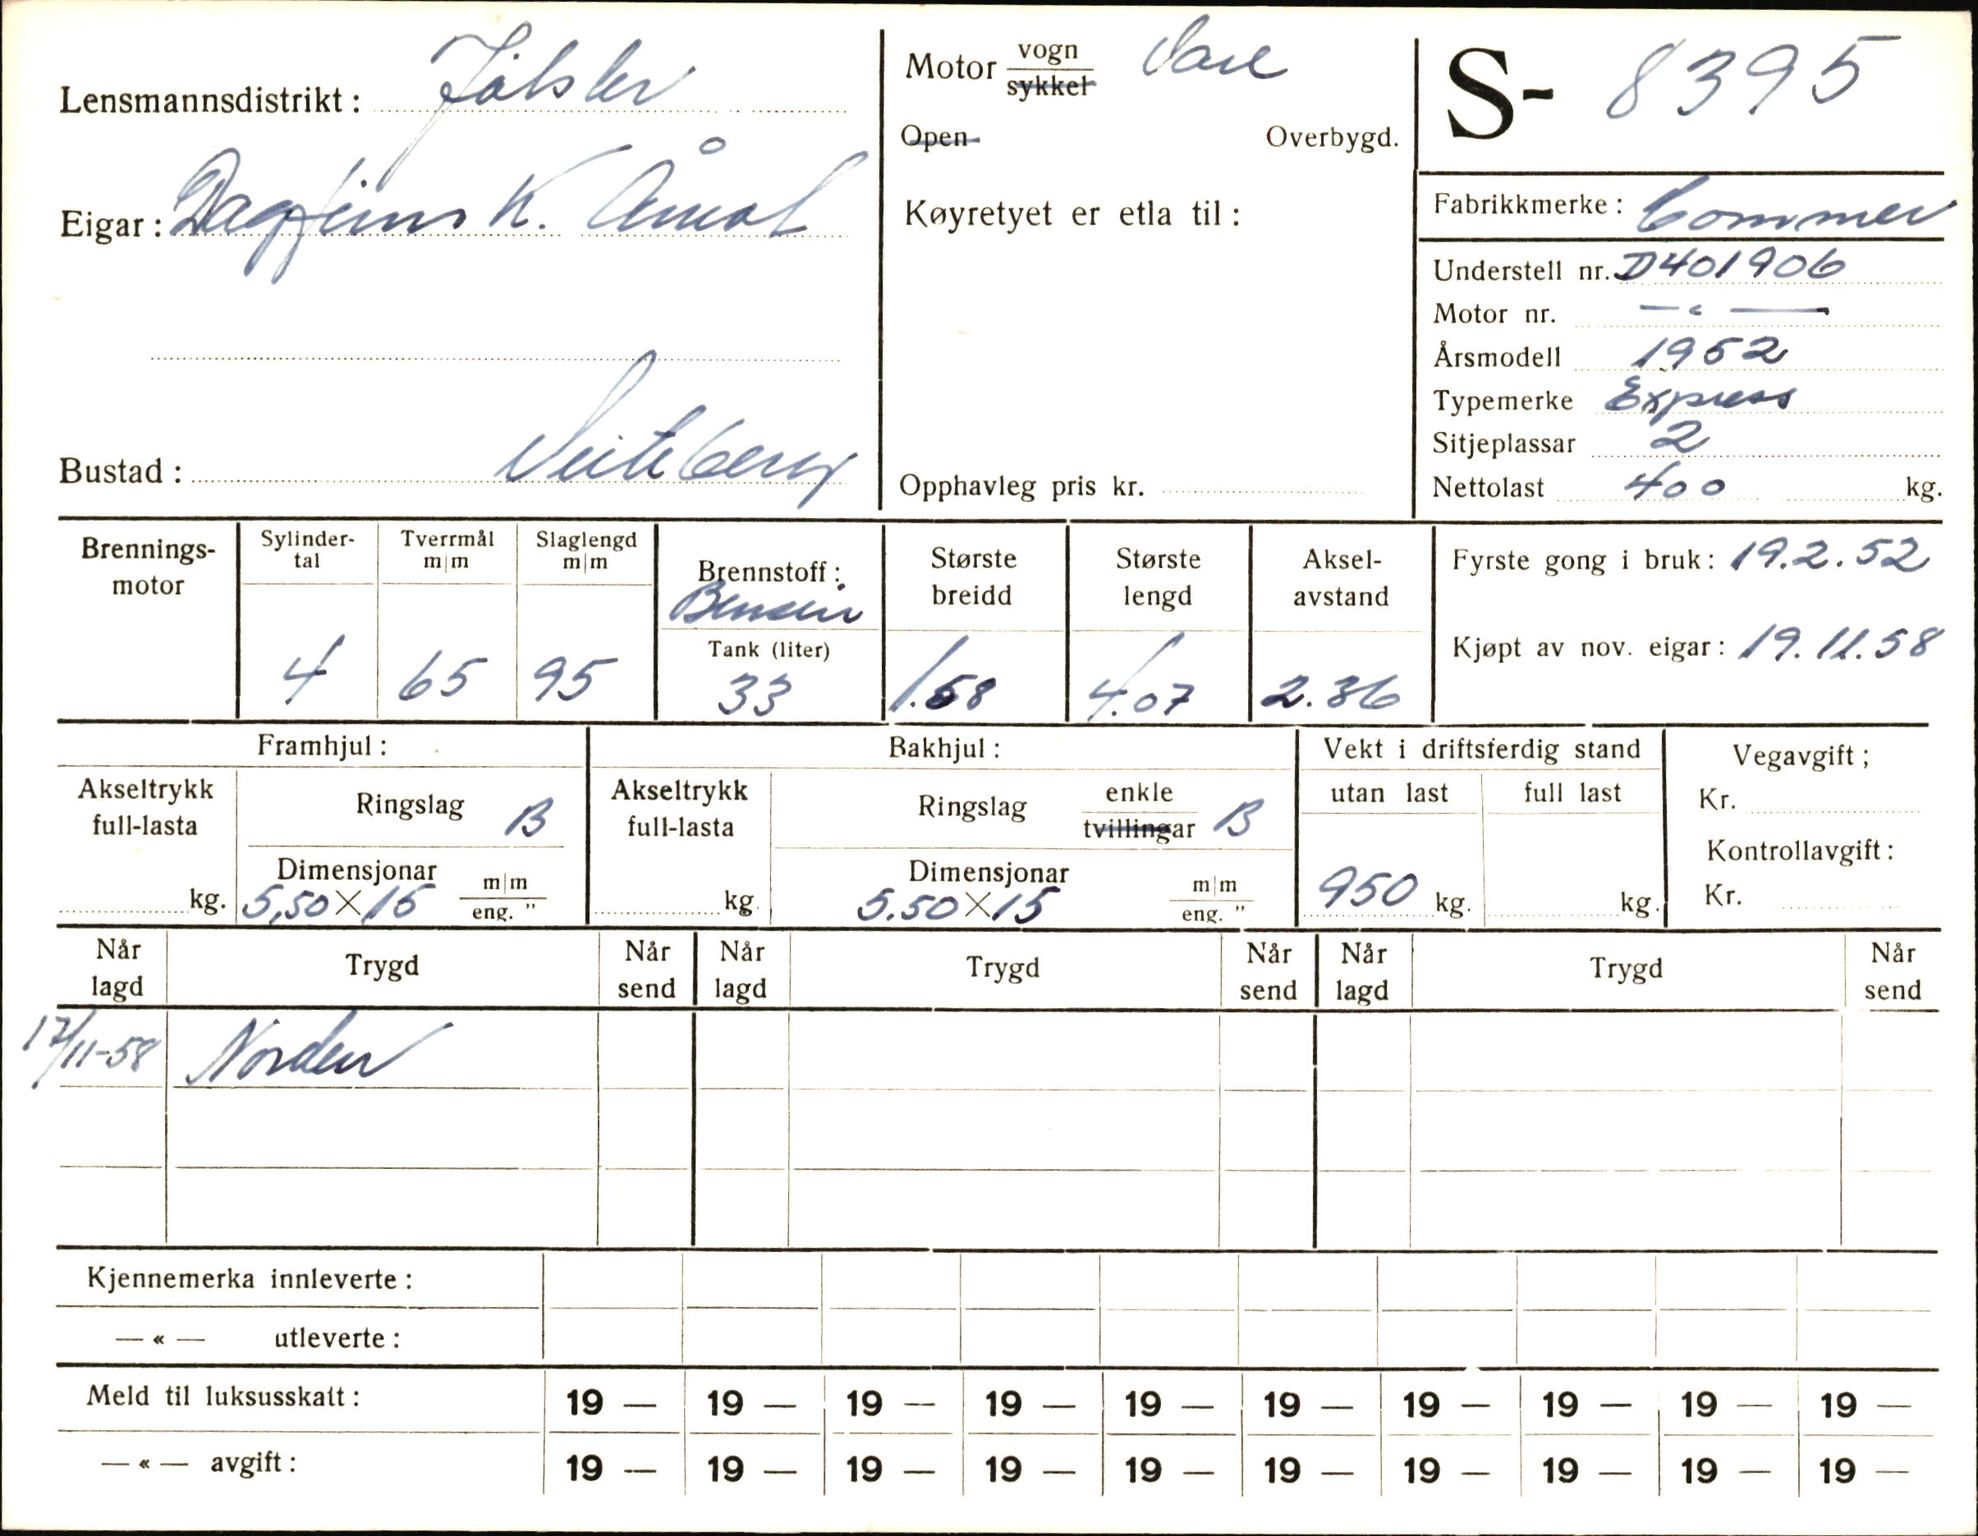 Lensmannsdistrikt: Jølster
Eigar: Dagfinn K. Åmot
Bustad: Veiteberg
Motor vogn sykkel Vare
Open Overbygd.
Køyretyet er etla til:
Opphavleg pris kr.
S- 8395
Fabrikkmerke: Commer
Understell nr. D401906
Motor nr. — « —
Årsmodell 1952
Typemerke Express
Sitjeplassar 2
Nettolast 400 kg.
Brennings-
motor
Sylinder-
tal
4
Tverrmål
m|m
65
Slaglengd
m|m
95
Brennstoff:
Bensin
Tank (liter)
33
Største
breidd
1.58
Største
lengd
4.07
Aksel-
avstand
2.36
Fyrste gong i bruk: 19.2.52
Kjøpt av nov. eigar: 19.11.58
Framhjul:
Akseltrykk
full-lasta
kg.
Ringslag B
Dimensjonar
5,50 X 15 m|m eng. "
Bakhjul:
Akseltrykk
full-lasta
kg.
Ringslag enkle tvillingar B
Dimensjonar
5.50 X 15 m|m eng. "
Vekt i driftsferdig stand
utan last full last
950 kg. kg.
Vegavgift;
Kr.
Kontrollavgift:
Kr.
Når lagd Trygd Når send Når lagd Trygd Når send Når lagd Trygd Når send
17/11-58 Norden
Kjennemerka innleverte:
— « — utleverte:
Meld til luksusskatt: 19 — 19 — 19 — 19 — 19 — 19 — 19 — 19 — 19 — 19 —
— « — avgift: 19 — 19 — 19 — 19 — 19 — 19 — 19 — 19 — 19 — 19 —